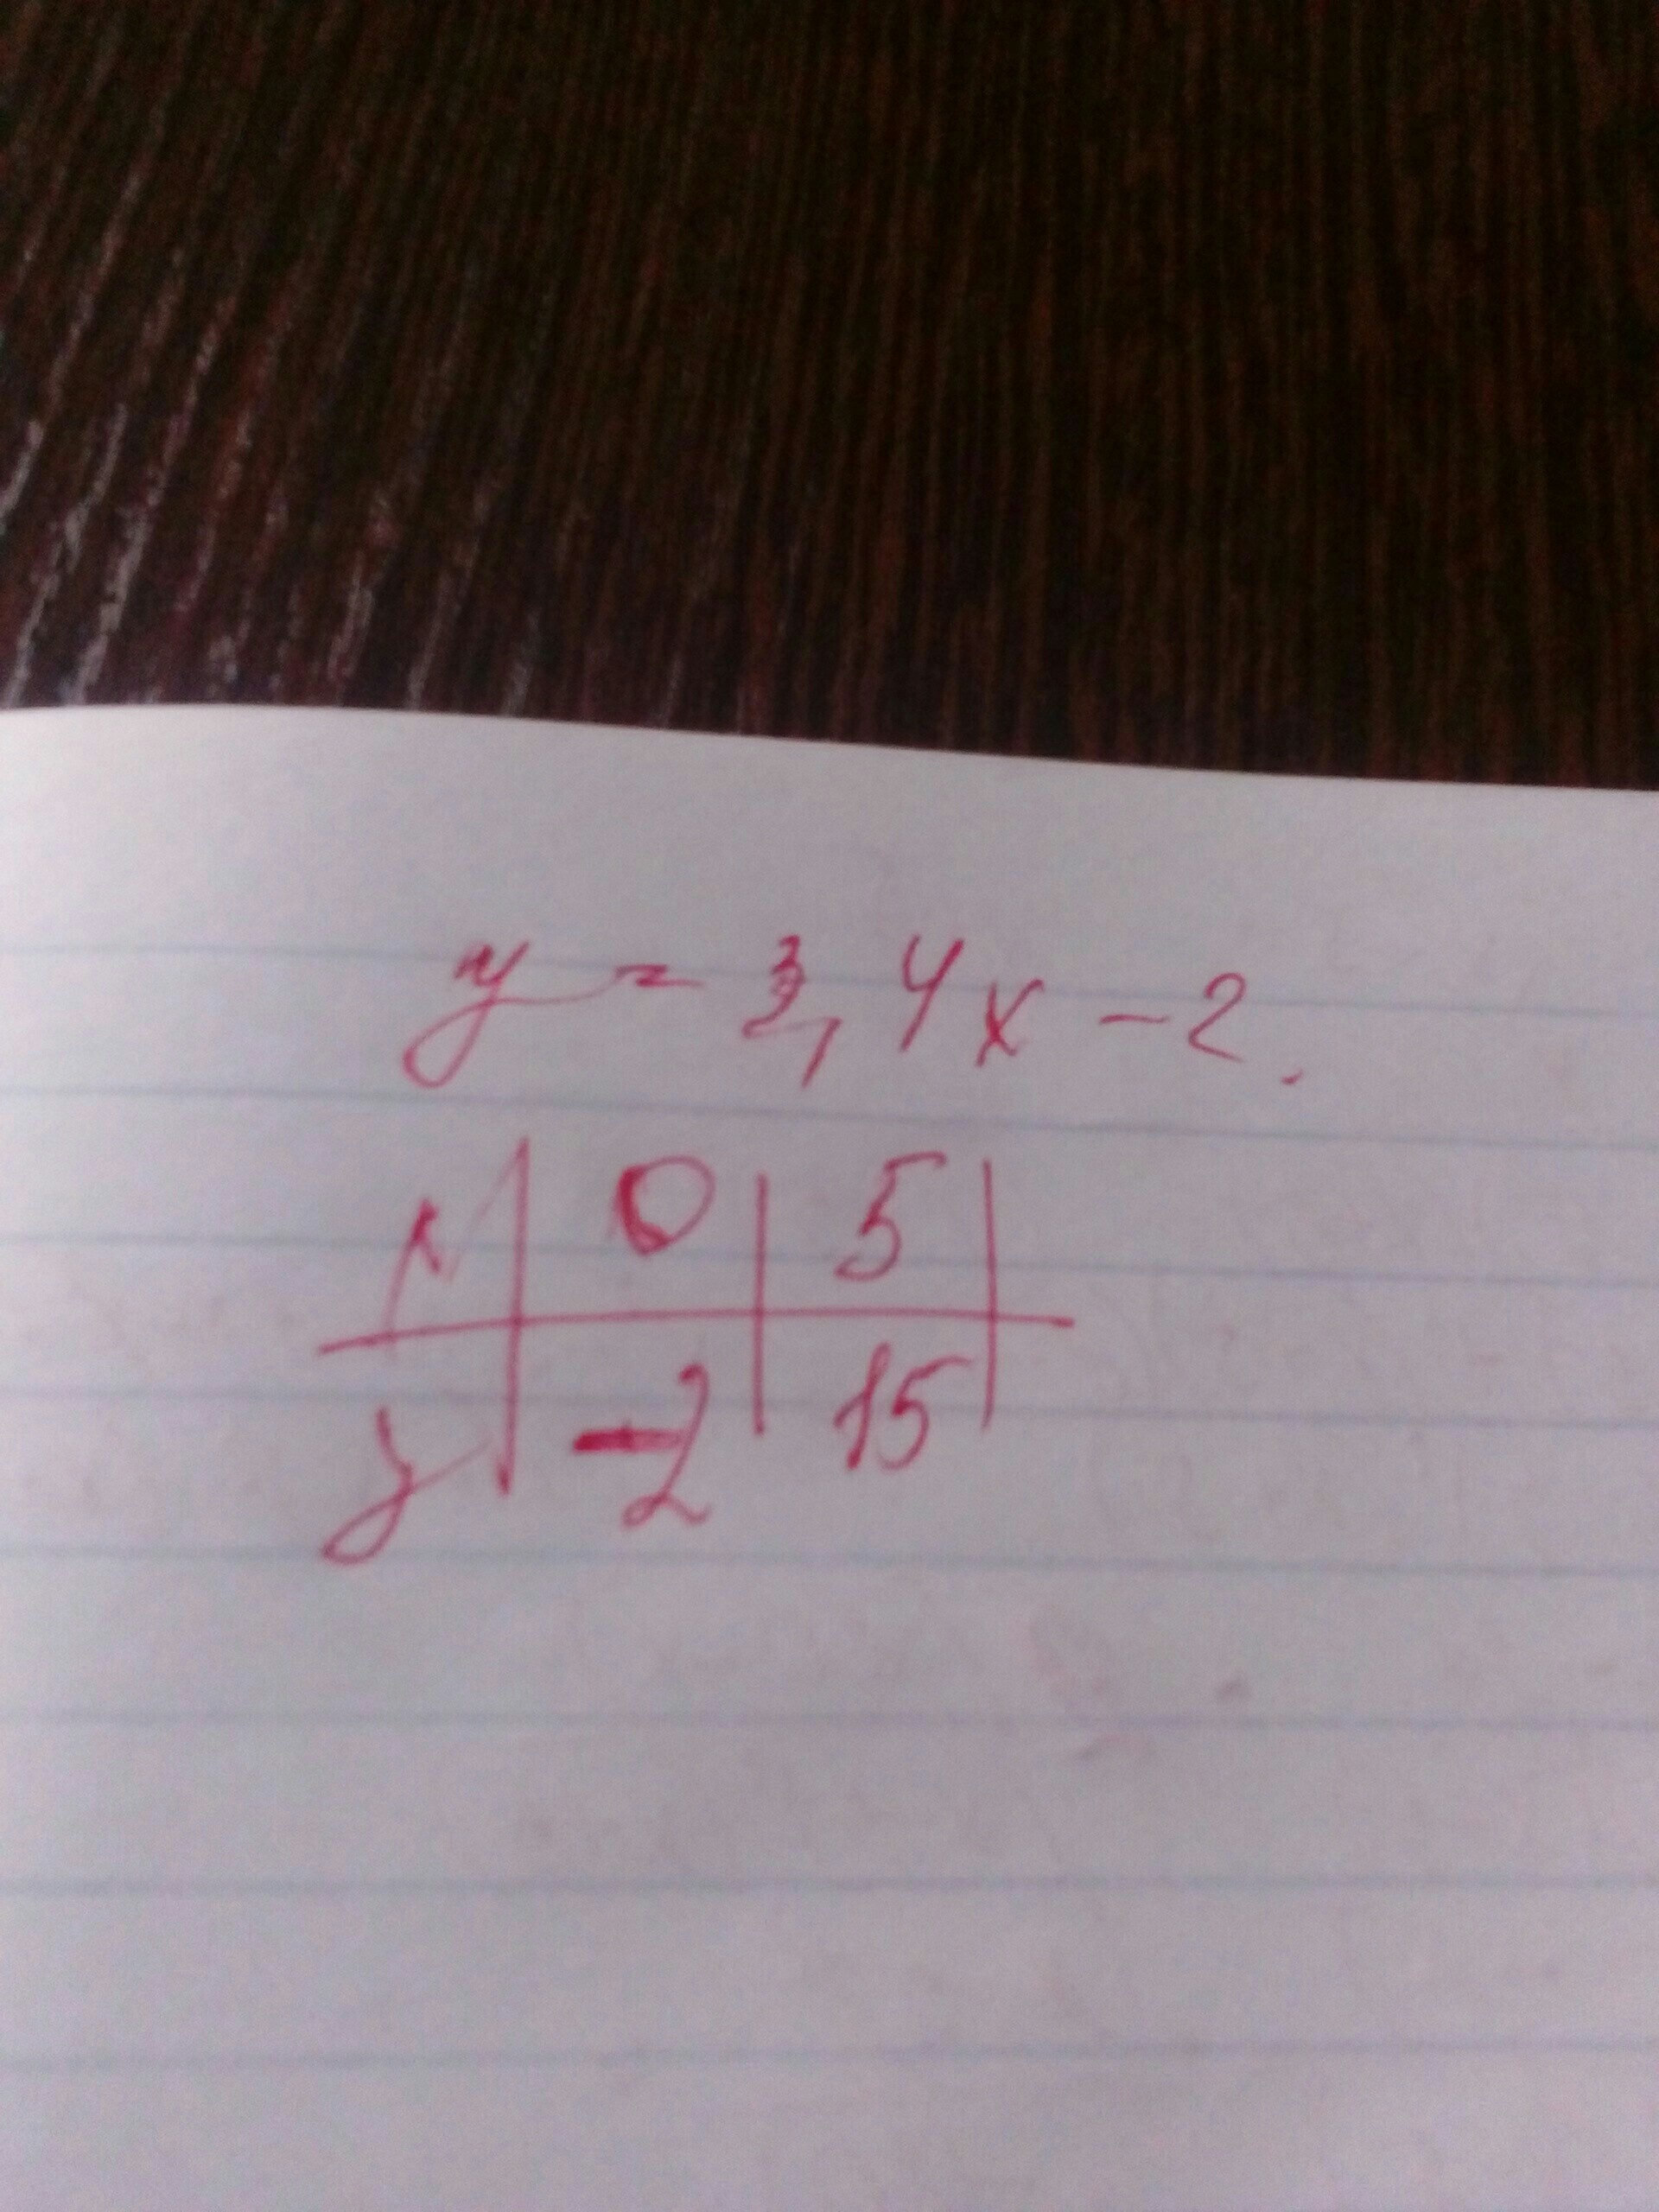 y = 3,4x - 2.
x | 0 | 5 |
y | -2 | 15 |